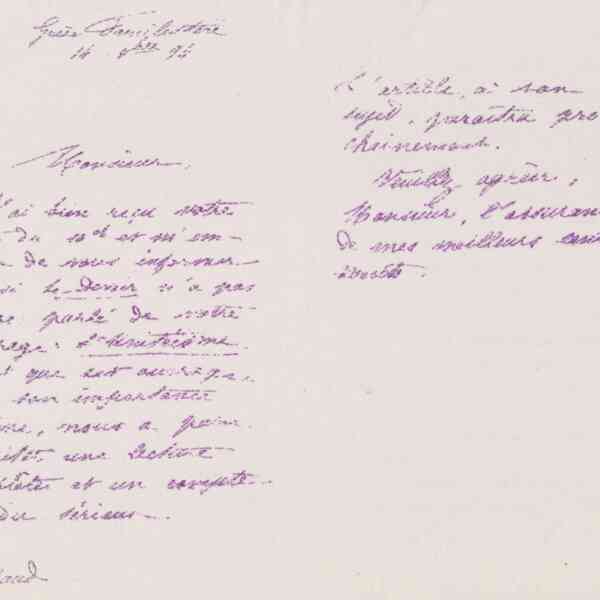 Guise Familistère
14 9bre 94
Monsieur,
ai bien reçu votre
du 10 et et m'em-
de vous informer
si le Devoir n'a pas
parlé de votre
que cet ouvrage,
son importance
, nous a paru
une lecture
et un compte
du sérieux.
aud
L'article, à son
sujet, paraîtra pro
chainement.
Veuillez agréer,
Monsieur, l'assuran
de mes meilleurs sent